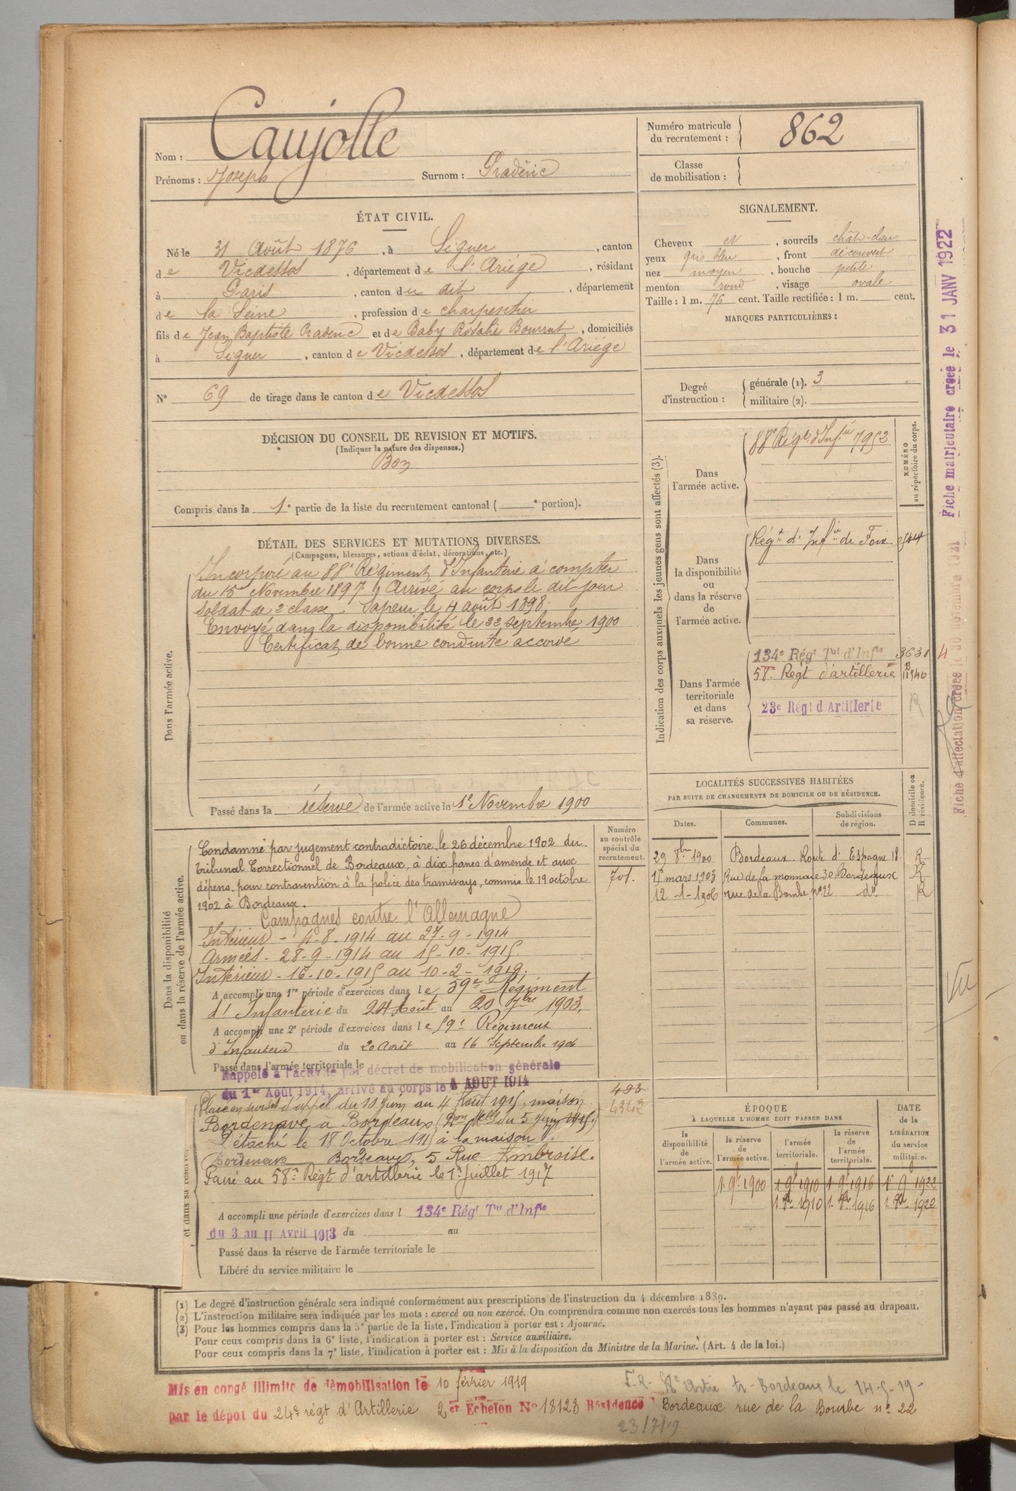 Nom : Caujolle
Prénoms : Joseph Surnom : Pradéric
Numéro matricule du recrutement : 862
Classe de mobilisation :
ÉTAT CIVIL.
Né le 31 Août 1876, à Siguer, canton
de Vicdessos, département de l'Ariège, résidant
à Paris, canton du dit, département
de la Seine, profession de charpentier
fils de Jean Baptiste Pradéric et de Baby Rosalie Bourrut, domiciliés
à Siguer, canton de Vicdessos, département de l'Ariège
N° 69 de tirage dans le canton de Vicdessos
SIGNALEMENT.
Cheveux et, sourcils chât-clair
yeux gris bleu, front découvert
nez moyen, bouche petite
menton rond, visage ovale
Taille : 1 m. 76 cent. Taille rectifiée : 1 m. cent.
MARQUES PARTICULIÈRES :
Degré d'instruction : générale (1). 3
militaire (2).
DÉCISION DU CONSEIL DE REVISION ET MOTIFS.
(Indiquer la nature des dispenses.)
Bon
Compris dans la 1e partie de la liste du recrutement cantonal ( e portion).
DÉTAIL DES SERVICES ET MUTATIONS DIVERSES.
(Campagnes, blessures, actions d'éclat, décorations, etc.)
Dans l'armée active.
Incorporé au 88e Régiment d'Infanterie à compter
du 15 Novembre 1897. Arrivé au corps le dit jour
Soldat de 2e classe. Sapeur le 4 août 1898.
Envoyé dans la disponibilité le 22 septembre 1900
Certificat de bonne conduite accordé
Passé dans la réserve de l'armée active le 1e Novembre 1900
Indication des corps auxquels les jeunes gens sont affectés (3).
NUMÉRO au répertoire du corps.
Dans l'armée active. 88e Régt d'Infie 7952
Dans la disponibilité ou dans la réserve de l'armée active. Régt d'Infie de Foix
Dans l'armée territoriale et dans sa réserve.
134e Régt Tal d'Infie 3631
58e Régt d'artillerie 11340
23e Régt d'Artillerie
Fiche matriculaire créée le 31 JANV 1922
LOCALITÉS SUCCESSIVES HABITÉES
PAR SUITE DE CHANGEMENTS DE DOMICILE OU DE RÉSIDENCE.
Dates. Communes. Subdivisions de région. D domicile ou R résidence.
29 8bre 1900 Bordeaux. Route d'Espagne 18 R
17 mars 1903 Rue de la monnaie 30 Bordeaux R
12-1-1906 rue de la Bombe n°22 do R
Dans la disponibilité ou dans la réserve de l'armée active.
Numéro au contrôle spécial du recrutement.
701.
Condamné par jugement contradictoire, le 26 décembre 1902 du
tribunal Correctionnel de Bordeaux, à dix francs d'amende et aux
dépens, pour contravention à la police des tramways, commis le 19 octobre
1902 à Bordeaux.
Campagnes contre l'Allemagne
Intérieur - 4-8-1914 au 27-9-1914
Armées - 28-9-1914 au 15-10-1915
Intérieur - 16-10-1915 au 10-2-1919.
A accompli une 1re période d'exercices dans le 59e Régiment
d'Infanterie du 24 Août au 20 7bre 1903.
A accompli une 2e période d'exercices dans le 59e Régiment
d'Infanterie du 20 août au 16 Septembre 1906
Passé dans l'armée territoriale le
Rappelé à l'activité par décret de mobilisation générale
du 1er Août 1914, arrivé au corps le 4 AOUT 1914
et dans sa réserve
493
4342
Placé en sursis d'appel du 11 Juin au 4 Août 1915, maison
Bordenave, à Bordeaux
Détaché le 18 Octobre 1915 à la maison
Bordenave Bordeaux, 5 Rue Ambroise.
Passé au 58e Régt d'artillerie le 1er juillet 1917
A accompli une période d'exercices dans l 134e Régt Tal d'Infie
du 3 au 11 Avril 1913 du au
Passé dans la réserve de l'armée territoriale le
Libéré du service militaire le
ÉPOQUE
À LAQUELLE L'HOMME DOIT PASSER DANS
la disponibilité de l'armée active. la réserve de l'armée active. l'armée territoriale. la réserve de l'armée territoriale. DATE de la LIBÉRATION du service militaire.
1. 9. 1900 1. 9. 1910 1. 9. 1916 1. 9. 1922
1. 8bre 1910 1. 8bre 1916 1. 8bre 1922
(1) Le degré d'instruction générale sera indiqué conformément aux prescriptions de l'instruction du 4 décembre 1889.
(2) L'instruction militaire sera indiquée par les mots : exercé ou non exercé. On comprendra comme non exercés tous les hommes n'ayant pas passé au drapeau.
(3) Pour les hommes compris dans la 5e partie de la liste, l'indication à porter est : Ajourné.
Pour ceux compris dans la 6e liste, l'indication à porter est : Service auxiliaire.
Pour ceux compris dans la 7e liste, l'indication à porter est : Mis à la disposition du Ministre de la Marine. (Art. 4 de la loi.)
Mis en congé illimité de démobilisation le 10 février 1919
par le dépot du 24e régt d'Artillerie 2er Echelon N° 18123 Résidence Bordeaux rue de la Bombe n° 22
Bordeaux le 14-5-19-
23/7/19